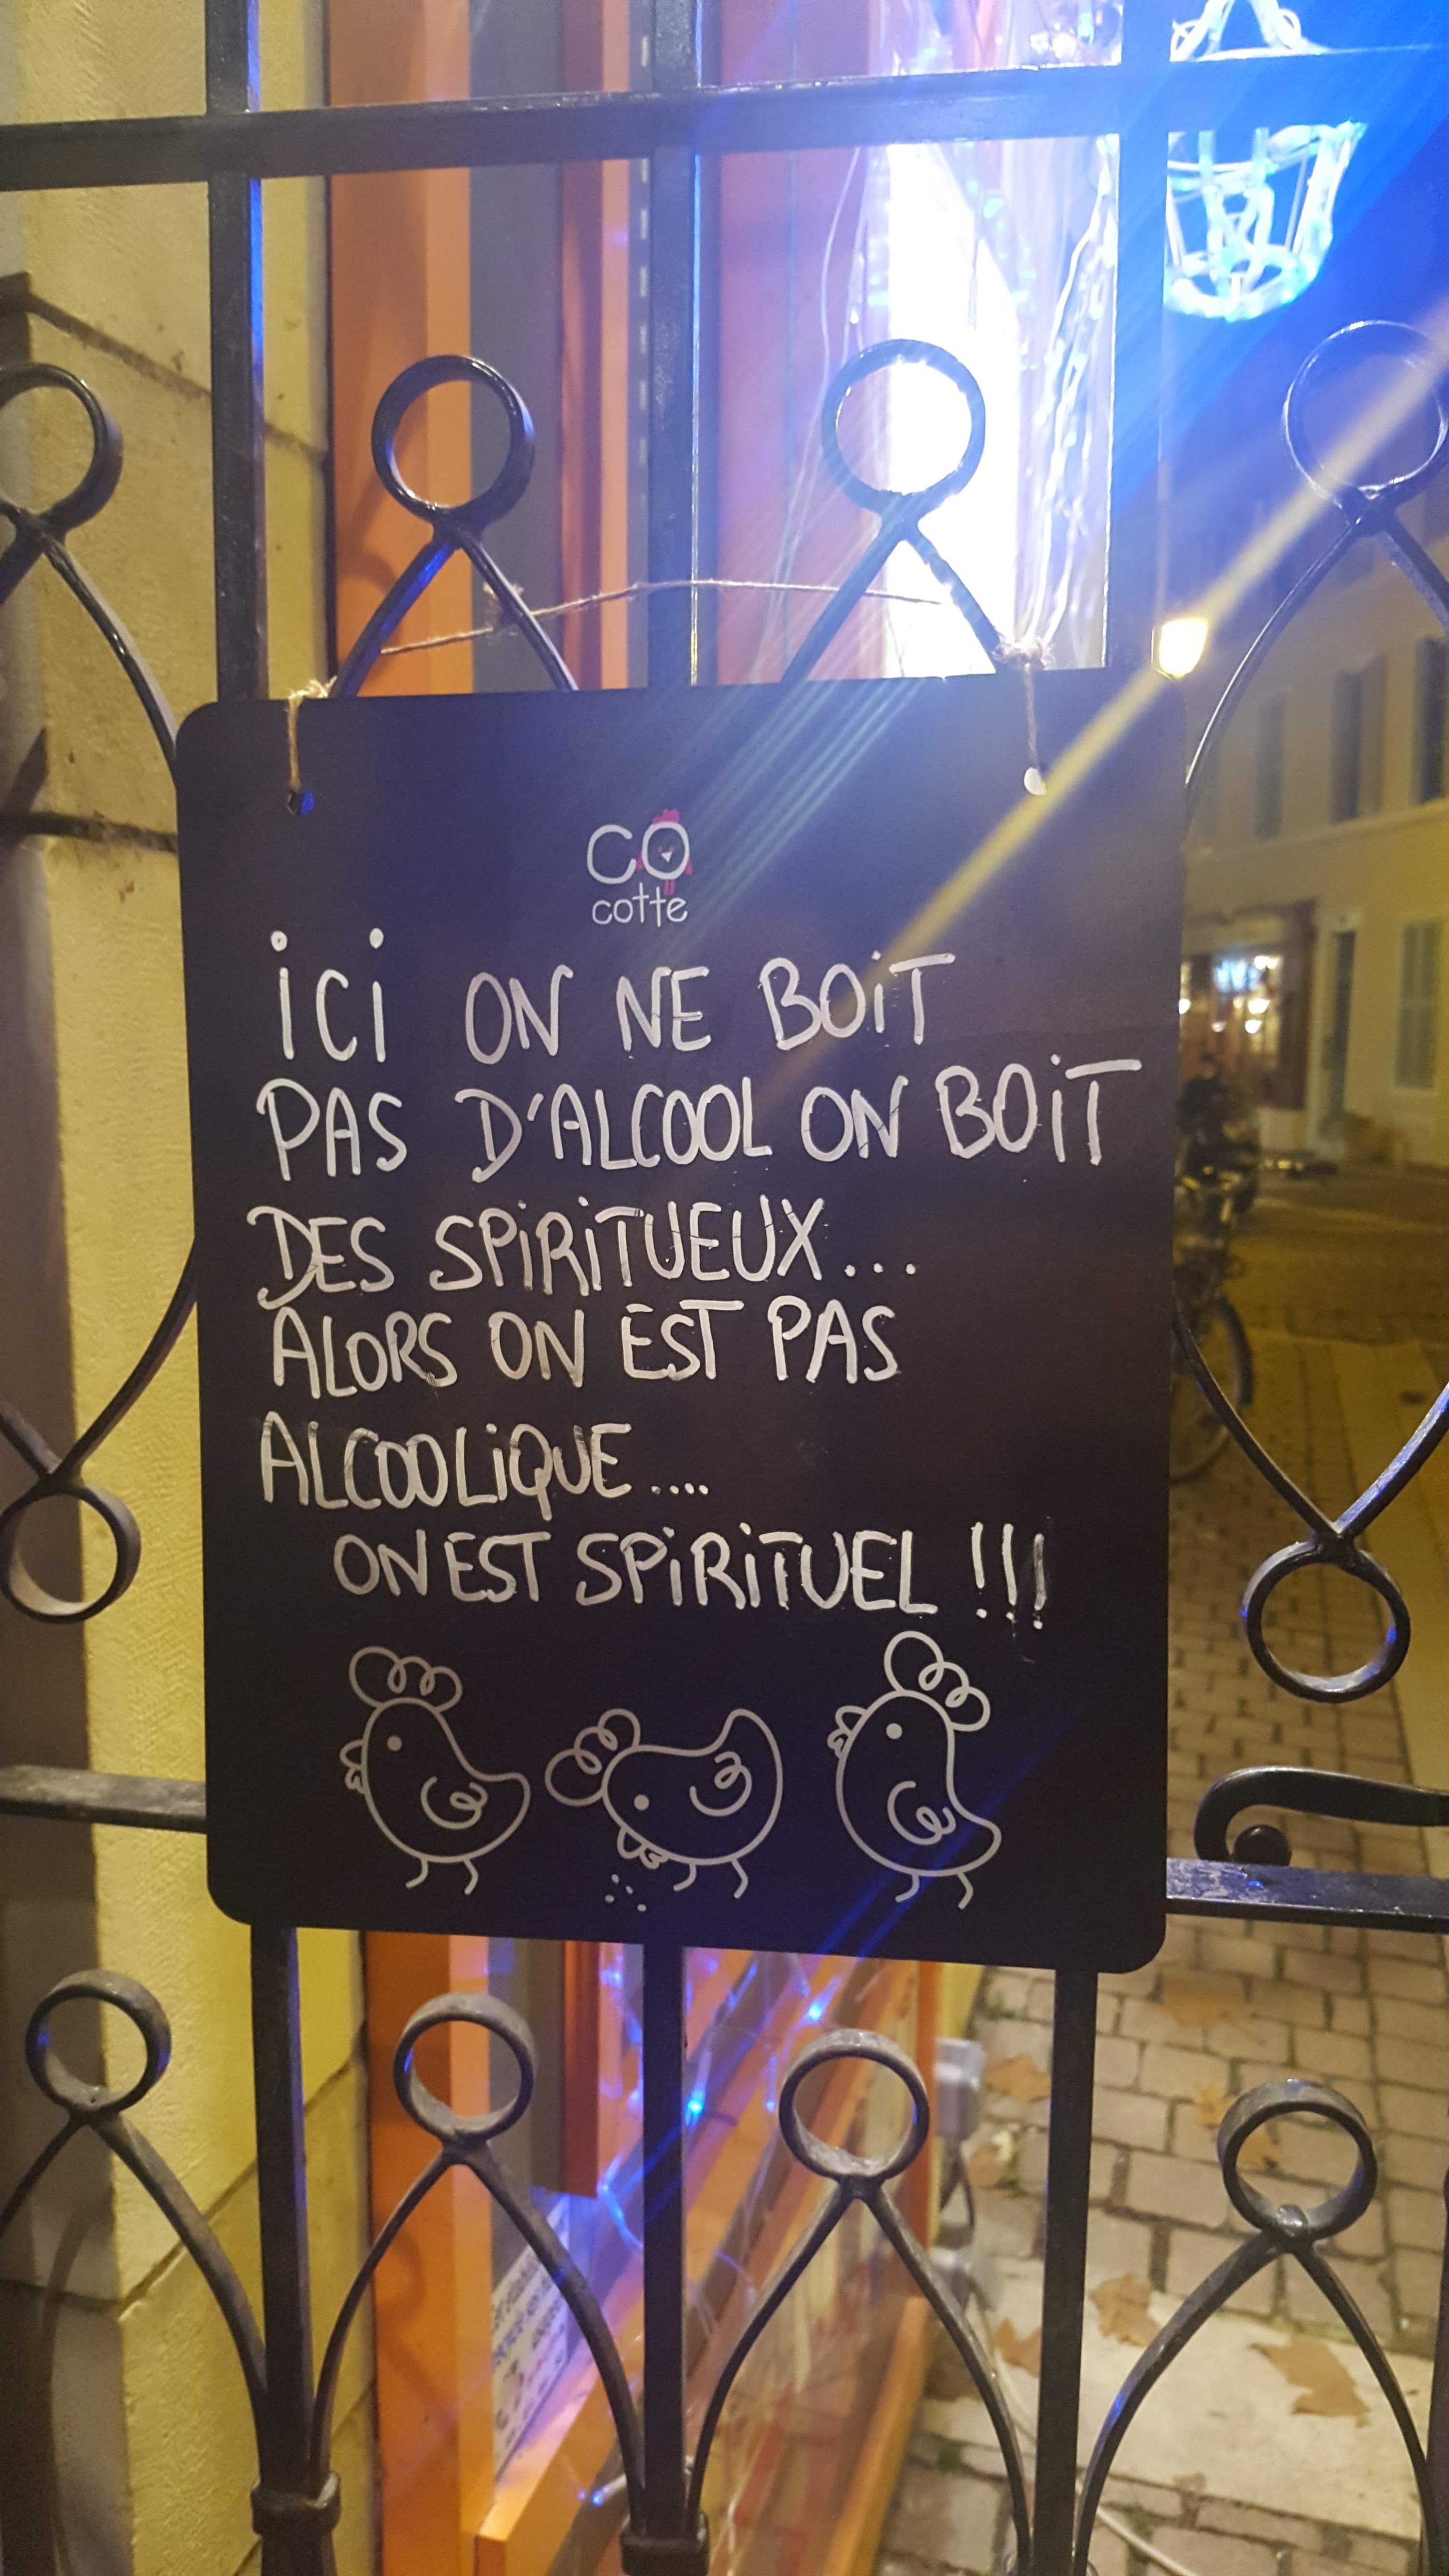 CO
cotte
iCi ON NE BOiT
PAS D'ALCOOL ON BOiT
DES SPiRiTUEUX...
ALORS ON EST PAS
ALCOOLiQUE....
ON EST SPiRiTUEL !!!